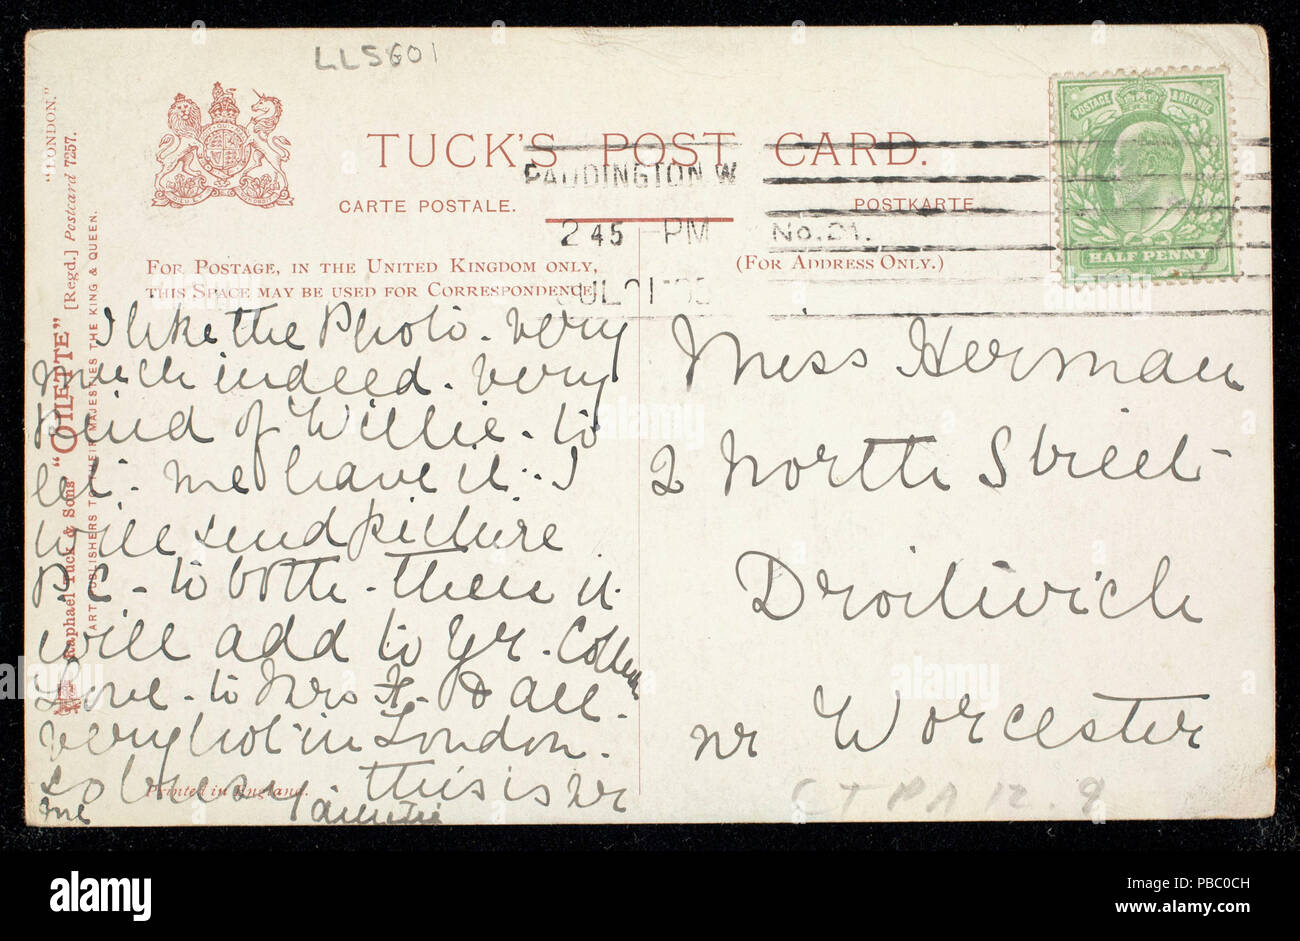 LL5601
TUCK'S POST CARD.
CARTE POSTALE.
POSTKARTE
PADDINGTON. W
2 45 PM
No. 21.
JUL 21 05
FOR POSTAGE, IN THE UNITED KINGDOM ONLY,
THIS SPACE MAY BE USED FOR CORRESPONDENCE
(FOR ADDRESS ONLY.)
POSTAGE & REVENUE
HALF PENNY
"LONDON."
Raphael Tuck & Sons "OILETTE" [Regd.] Postcard 7257.
ART PUBLISHERS TO THEIR MAJESTIES THE KING & QUEEN.
I like the Photo. very
much indeed. very
kind of Willie. to
let. me have it. I
will send picture
P.C. to both. then it
will add to yr. Collectn
Love. to Mrs H. & all.
very hot in London.
so busy this is wr
me
Printed in England.
Miss Herman
2 North Street
Droitwich
nr Worcester
CTPA12.9
alamy
Image ID: PBC0CH
www.alamy.com